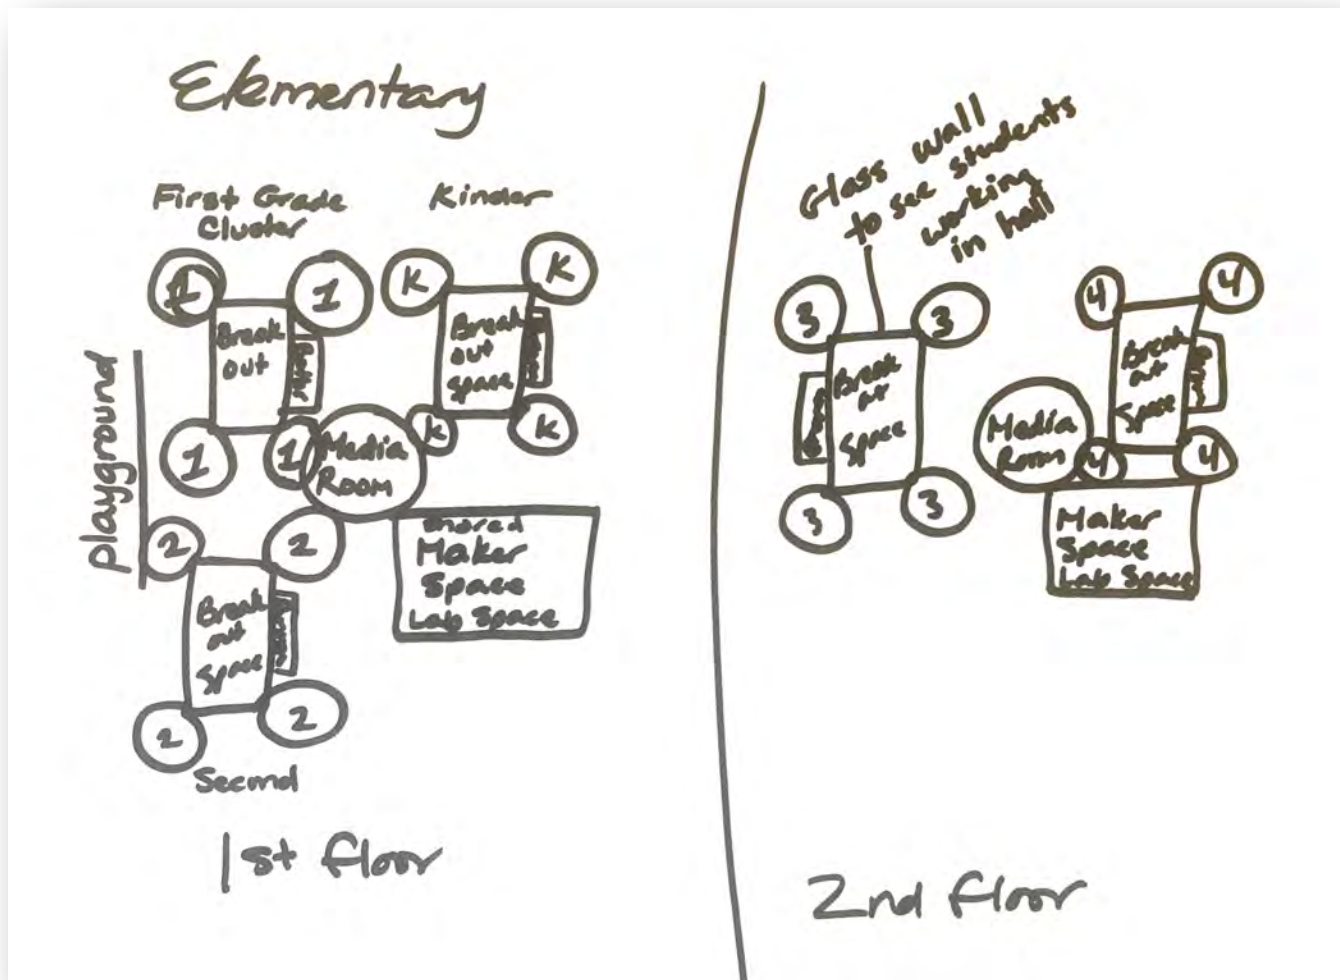 Elementary
First Grade
Cluster
Kinder
1
1
K
K
Break
out
Break
out
space
playground
1
1
Media
Room
K
K
2
2
Shared
Maker
Space
Lab Space
Break
out
Space
2
2
Second
1st floor
Glass wall
to see students
working
in hall
3
3
4
4
Break
out
Space
Break
out
Space
Media
Room
4
4
3
3
Maker
Space
Lab Space
2nd floor